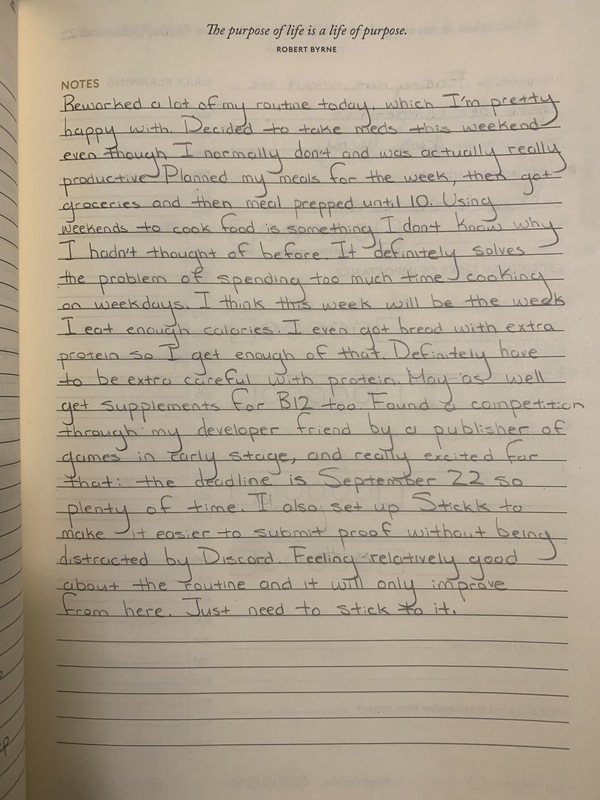 The purpose of life is a life of purpose.
ROBERT BYRNE
NOTES
Reworked a lot of my routine today, which I'm pretty
happy with. Decided to take meds this weekend
even though I normally don't and was actually really
productive. Planned my meals for the week, then got
groceries and then meal prepped until 10. Using
weekends to cook food is something I don't know why
I hadn't thought of before. It definitely solves
the problem of spending too much time cooking
on weekdays. I think this week will be the week
I eat enough calories. I even got bread with extra
protein so I get enough of that. Definitely have
to be extra careful with protein. May as well
get supplements for B12 too. Found a competition
through my developer friend by a publisher of
games in early stage, and really excited for
that: the deadline is September 22 so
plenty of time. I also set up Stickk to
make it easier to submit proof without being
distracted by Discord. Feeling relatively good
about the routine and it will only improve
from here. Just need to stick to it.